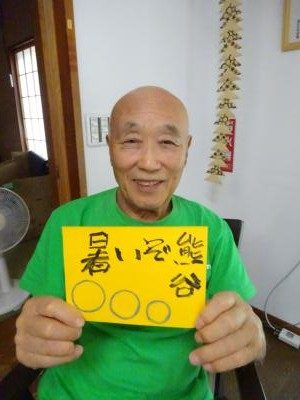 暑いぞ熊谷
○○○